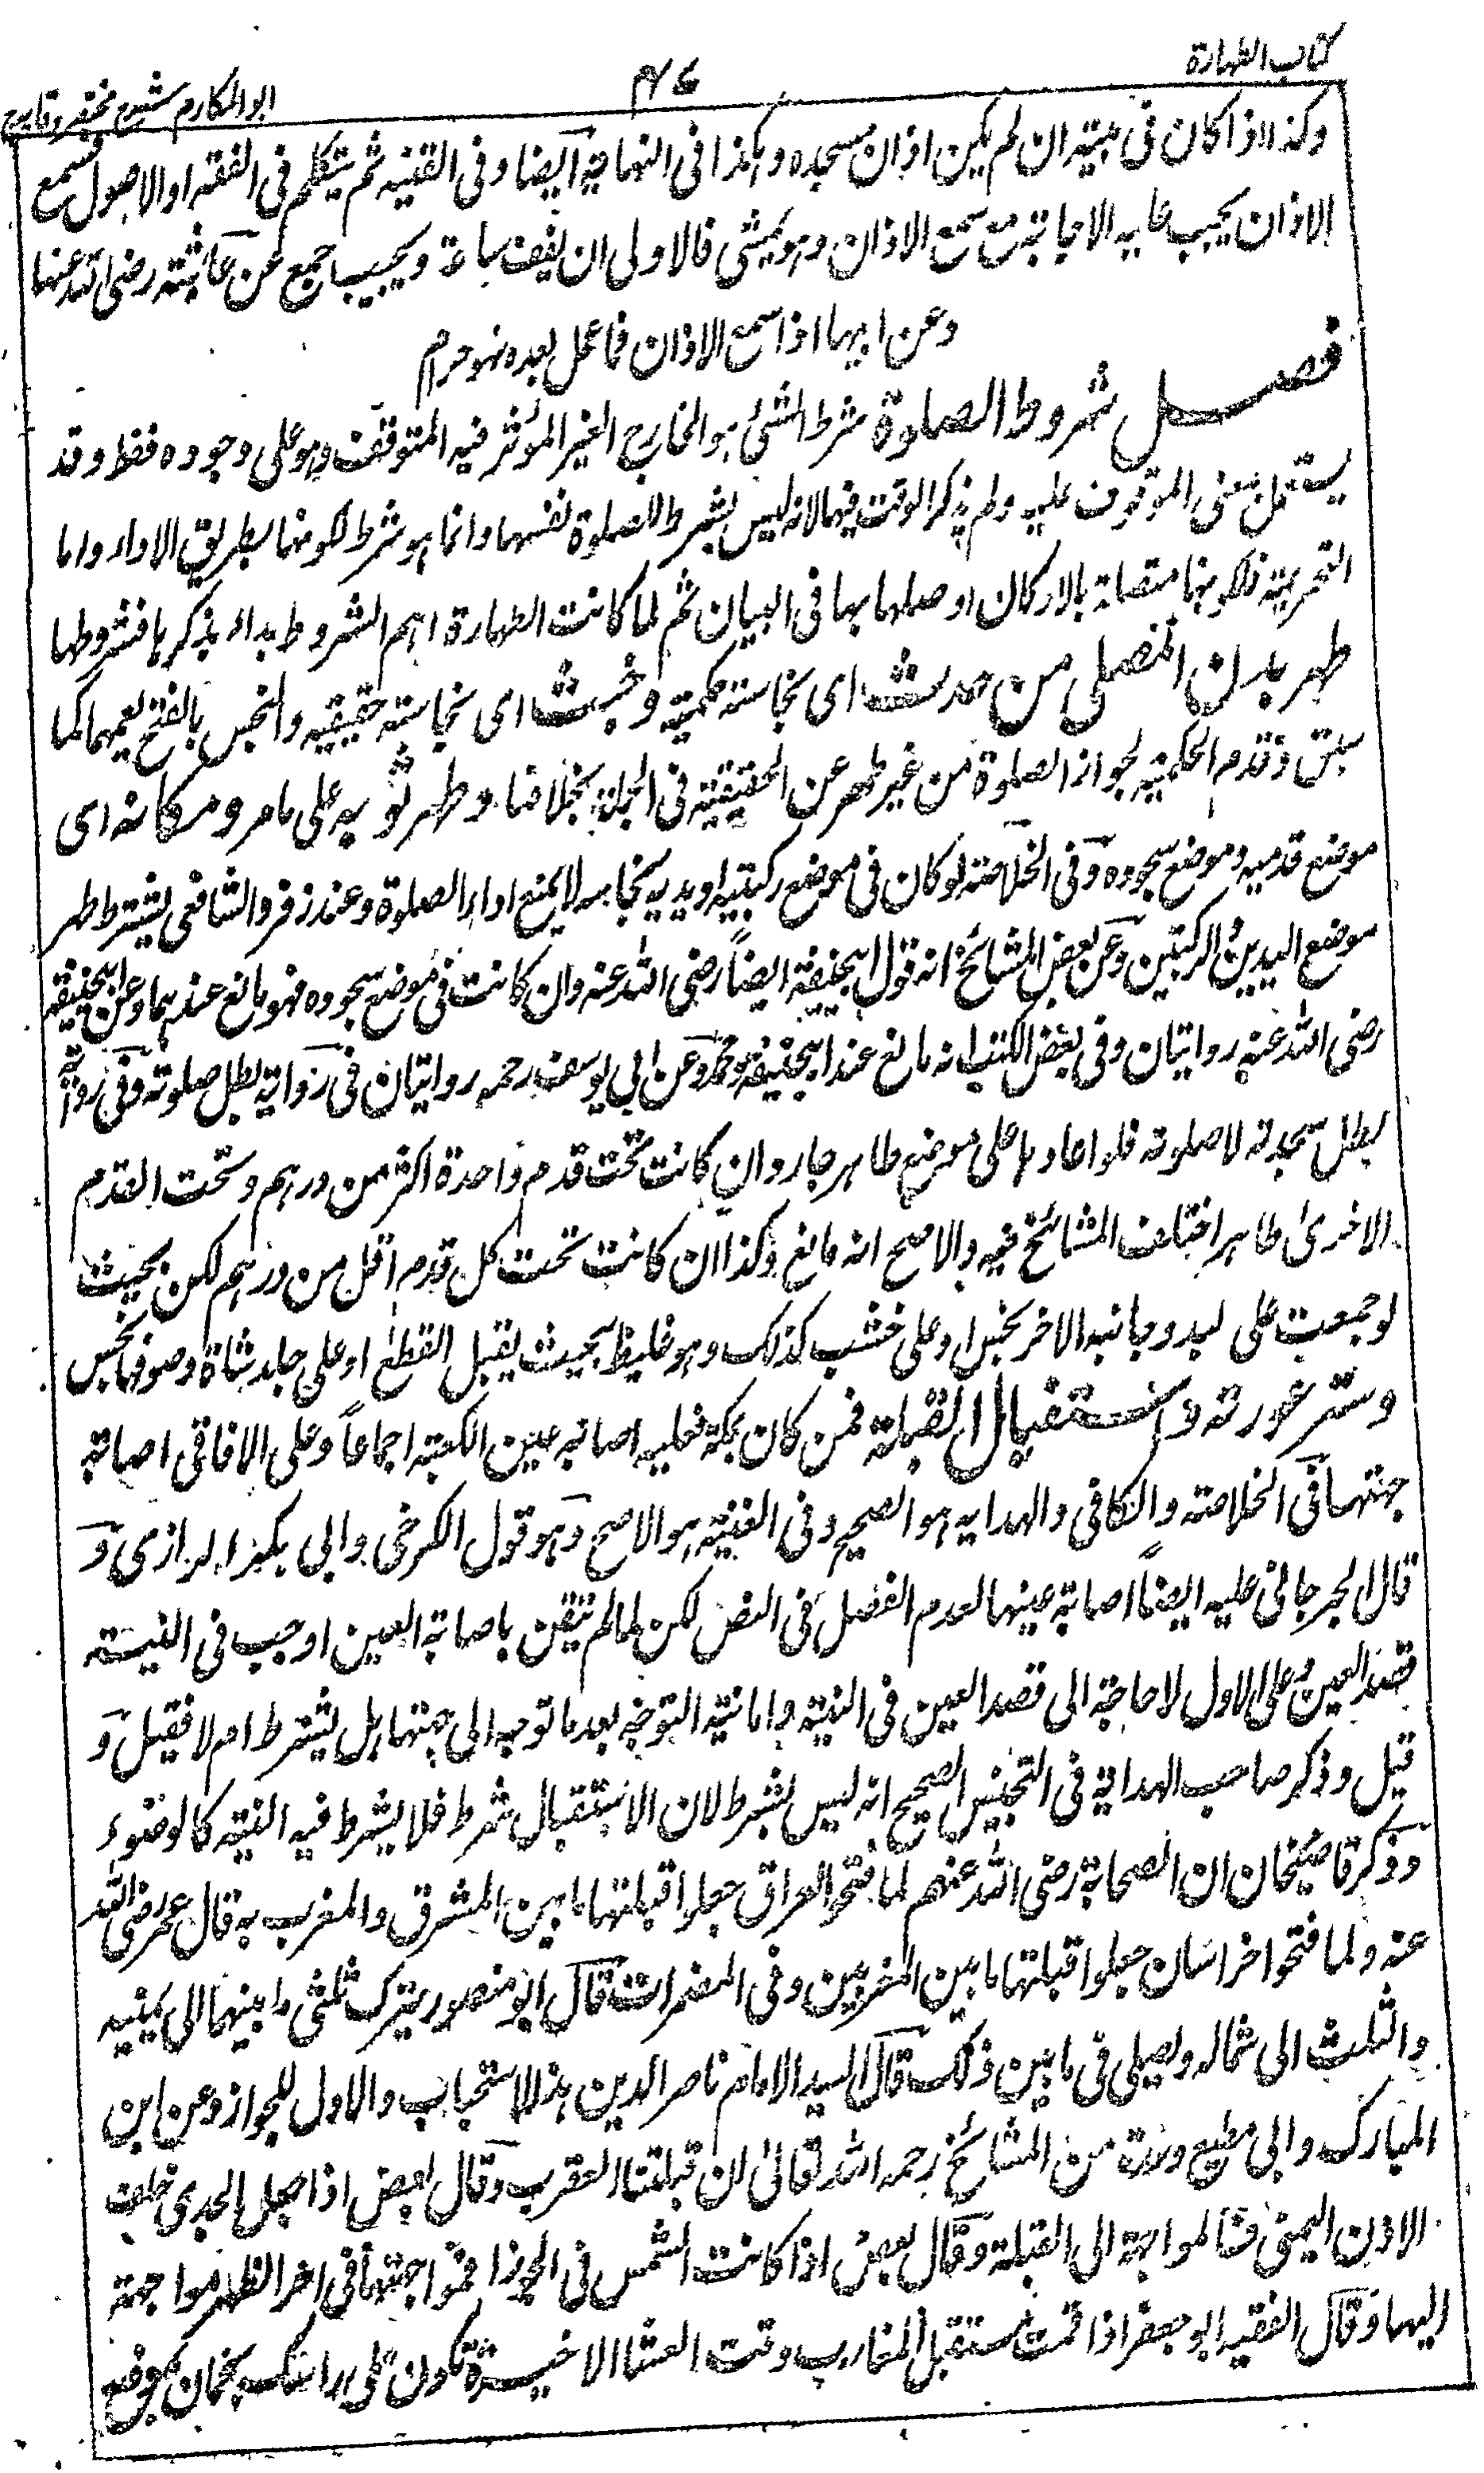 كتاب الطهارة
٤٧
ابو المكارم شرح مختصر وقايه
وكذا اذا كان فى بيته ان لم يكن اذان مسجده وهكذا فى النهاية ايضا وفى القنيه ثم يتكلم فى الفقه او الاصول فسمع
الاذان يجب عليه الاجابة مع سمع الاذان وهو يمشى فالاولى ان يقف ساعة ويجيب جمع عن عائشة رضى الله عنها
وعن ابيها اذا سمع الاذان فما عمل بعده فهو حرام
فصل شروط الصلوة شرط الشئ هو الخارج الغير المؤثر فيه المتوقف هو على وجوده فقط وقد
يستعمل بمعنى الموقوف عليه ولم يذكر الوقت فيها لانه ليس بشرط للصلوة نفسها وانما هو شرط لكونها بطريق الاداء واما
التحريمة فلكونها متصلة بالاركان اوصلها بها فى البيان ثم لما كانت الطهارة اهم الشروط بداء بذكرها فشروطها
طهر بدن المصلى من حدث اى نجاسته حكمية وخبث اى نجاسته حقيقيه والنجس بالفتح يعمهما كما
سبق وقدم الحكمية لجواز الصلوة من غير طهر عن الحقيقية فى الجملة بخلافها وطهر ثوبه على ما مر ومكانه اى
موضع قدميه وموضع سجوده وفى الخلاصة لو كان فى موضع ركبتيه او يديه نجاسه لا يمنع اداء الصلوة وعند زفر والشافعى يشترط طهر
موضع اليدين والركبتين وعن بعض المشائخ انه قول ابيحنيفة ايضاً رضى الله عنه وان كانت فى موضع سجوده فهو مانع عندهما وعن ابيحنيفة
رضى الله عنه روايتان وفى بعض الكتب انه مانع عند ابيحنيفة ومحمد وعن ابى يوسف رحمه روايتان فى رواية يطل صلوته وفى رواية
يطل سجدته لا صلوته فلو اعادها على موضع طاهر جاز وان كانت تحت قدم واحدة اكثر من درهم وتحت القدم
الاخرىٰ طاهر اختلف المشائخ فيه والاصح انه مانع وكذا ان كانت تحت كل قدمه اقل من درهم لكن بحيث
لو جمعت على لبد وجانبه الاخر نجس او على خشب كذلك وهو غليظ بحيث يقبل القطع او على جلد شاة وصوفها نجس
وستر عورته واستقبال القبلة فمن كان بمكة فعليه اصابة عين الكعبة اجماعاً وعلى الافاقى اصابة
جهتها فى الخلاصة والكافى والهدايه هو الصحيح وفى القنية هو الاصح وهو قول الكرخى وابى بكر الرازى و
قال الجرجانى عليه ايضاً اصابة عينها لعدم الفصل فى النص لكن لما لم يتقن باصابة العين اوجب فى النية
قصد العين وعلى الاول لا حاجة الى قصد العين فى النية واما نية التوجه بعد ما توجه الى جهتها هل يشترط ام لا فقيل و
قيل وذكر صاحب الهداية فى التجنيس الصحيح انه ليس بشرط لان الاستقبال شرط فلا يشرط فيه النية كالوضوء
وذكر قاضيخان ان الصحابة رضى الله عنهم لما فتحوا العراق جعلوا قبلتها ما بين المشرق والمغرب به قال عمر رضى الله
عنه ولما فتحوا خراسان جعلوا قبلتها ما بين المغربين وفى المضمرات قال ابو منصور يترك ثلثى ما بينهما الى يمينه
والثلث الى شماله ويصلى فى ما بين ذلك قال السيد الامام ناصر الدين هذا لاستحباب والاول للجواز وعن ابن
المبارك وابى مطيع وعدة من المشائخ رحمه الله تعالىٰ ان قبلتنا العقرب وقال بعض اذا جعل الجدى خلف
الاذن اليمنى فالمواجهة الى القبلة وقال بعض اذا كانت الشمس فى الجوزا فمواجهتها فى اخر الظهر مواجهة
اليها وقال الفقيه ابو جعفر اذا قمت مستقبل المغارب وقت العشا الاخيرة تكون على راسك نجمان موقع